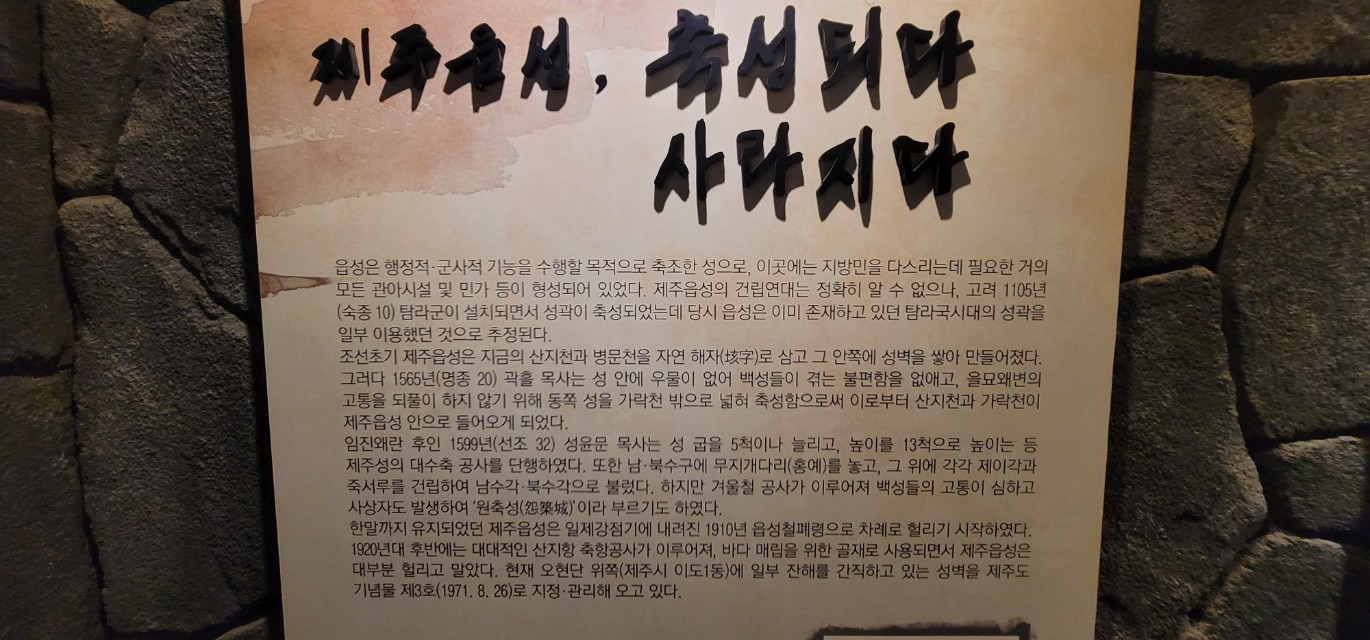 제주읍성, 축성되다
사라지다
읍성은 행정적·군사적 기능을 수행할 목적으로 축조한 성으로, 이곳에는 지방민을 다스리는데 필요한 거의
모든 관아시설 및 민가 등이 형성되어 있었다. 제주읍성의 건립연대는 정확히 알 수 없으나, 고려 1105년
(숙종 10) 탐라군이 설치되면서 성곽이 축성되었는데 당시 읍성은 이미 존재하고 있던 탐라국시대의 성곽을
일부 이용했던 것으로 추정된다.
조선초기 제주읍성은 지금의 산지천과 병문천을 자연 해자(垓字)로 삼고 그 안쪽에 성벽을 쌓아 만들어졌다.
그러다 1565년(명종 20) 곽흘 목사는 성 안에 우물이 없어 백성들이 겪는 불편함을 없애고, 을묘왜변의
고통을 되풀이 하지 않기 위해 동쪽 성을 가락천 밖으로 넓혀 축성함으로써 이로부터 산지천과 가락천이
제주읍성 안으로 들어오게 되었다.
임진왜란 후인 1599년(선조 32) 성윤문 목사는 성 굽을 5척이나 늘리고, 높이를 13척으로 높이는 등
제주성의 대수축 공사를 단행하였다. 또한 남·북수구에 무지개다리(홍예)를 놓고, 그 위에 각각 제이각과
죽서루를 건립하여 남수각·북수각으로 불렀다. 하지만 겨울철 공사가 이루어져 백성들의 고통이 심하고
사상자도 발생하여 '원축성(怨築城)'이라 부르기도 하였다.
한말까지 유지되었던 제주읍성은 일제강점기에 내려진 1910년 읍성철폐령으로 차례로 헐리기 시작하였다.
1920년대 후반에는 대대적인 산지항 축항공사가 이루어져, 바다 매립을 위한 골재로 사용되면서 제주읍성은
대부분 헐리고 말았다. 현재 오현단 위쪽(제주시 이도1동)에 일부 잔해를 간직하고 있는 성벽을 제주도
기념물 제3호(1971. 8. 26)로 지정·관리해 오고 있다.